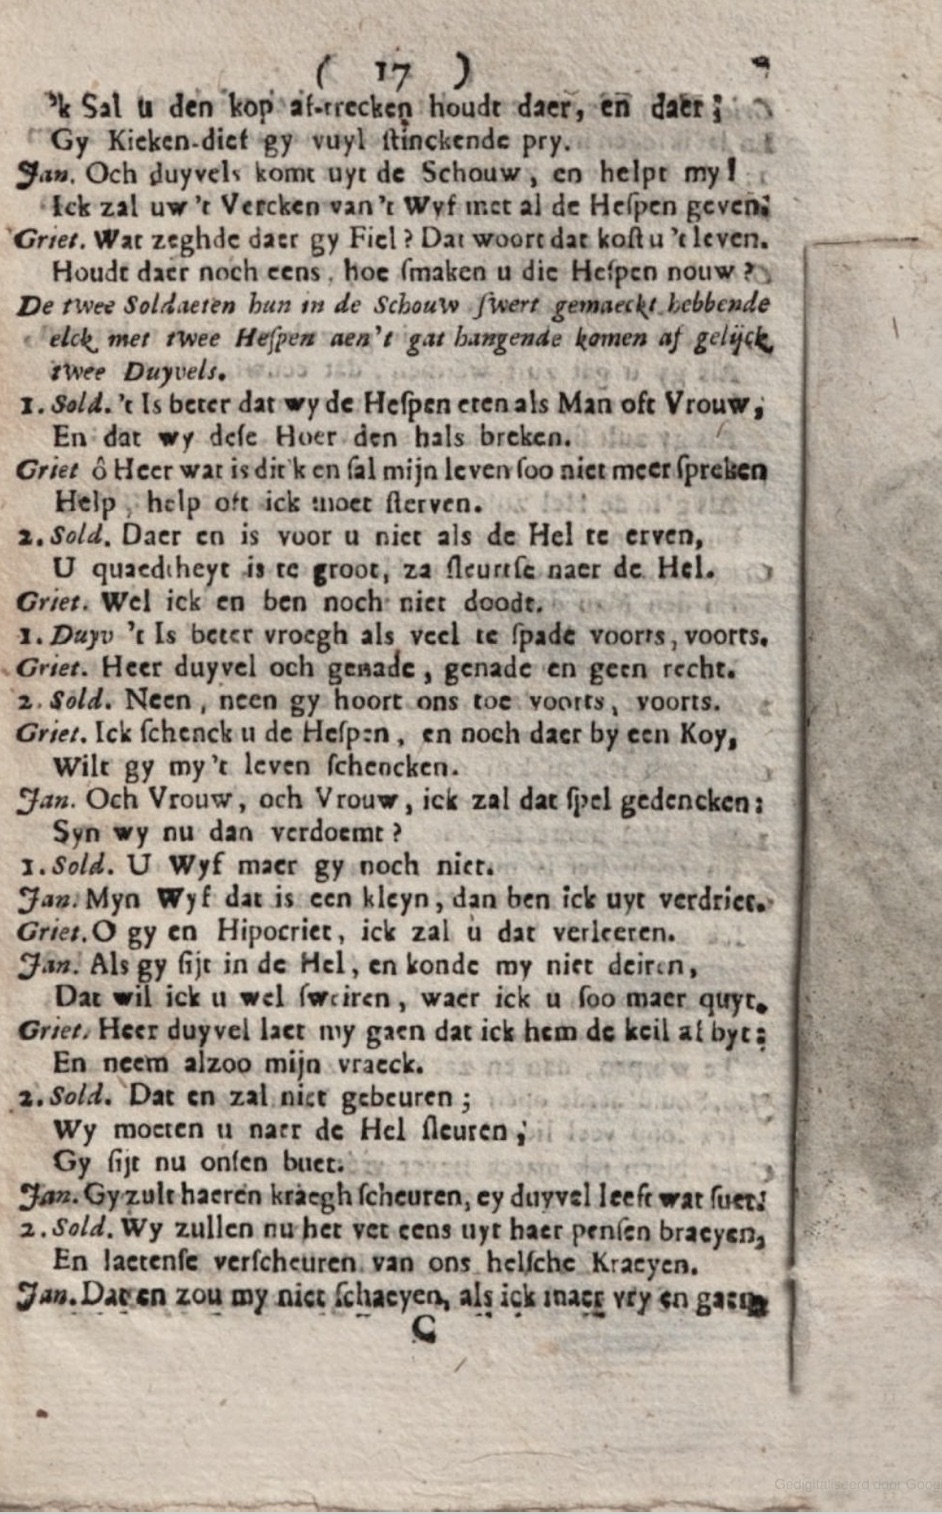 ( 17 )
'k Sal u den kop af-trecken houdt daer, en daer;
Gy Kieken-dief gy vuyl ſtinckende pry.
Jan. Och duyvels komt uyt de Schouw, en helpt my!
Ick zal uw 't Vercken van 't Wyf met al de Heſpen geven;
Griet. Wat zeghde daer gy Fiel? Dat woort dat koſt u 't leven.
Houdt daer noch eens, hoe ſmaken u die Heſpen nouw?
De twee Soldaeten hun in de Schouw ſwert gemaeckt hebbende
elck met twee Heſpen aen't gat hangende komen af gelijck
twee Duyvels.
1. Sold. 't Is beter dat wy de Heſpen eten als Man oft Vrouw,
En dat wy deſe Hoer den hals breken.
Griet ô Heer wat is dit 'k en ſal mijn leven ſoo niet meer ſpreken
Help, help oft ick moet ſterven.
2. Sold. Daer en is voor u niet als de Hel te erven,
U quaedtheyt is te groot, za ſleurtſe naer de Hel.
Griet. Wel ick en ben noch niet doodt.
1. Duyv 't Is beter vroegh als veel te ſpade voorts, voorts.
Griet. Heer duyvel och genade, genade en geen recht.
2. Sold. Neen, neen gy hoort ons toe voorts, voorts.
Griet. Ick ſchenck u de Heſpen, en noch daer by een Koy,
Wilt gy my 't leven ſchencken.
Jan. Och Vrouw, och Vrouw, ick zal dat ſpel gedencken:
Syn wy nu dan verdoemt?
1. Sold. U Wyf maer gy noch niet.
Jan. Myn Wyf dat is een kleyn, dan ben ick uyt verdriet.
Griet. O gy en Hipocriet, ick zal u dat verleeren.
Jan. Als gy ſijt in de Hel, en konde my niet deiren,
Dat wil ick u wel ſweiren, waer ick u ſoo maer quyt.
Griet. Heer duyvel laet my gaen dat ick hem de keil af byt:
En neem alzoo mijn vraeck.
2. Sold. Dat en zal niet gebeuren;
Wy moeten u naer de Hel ſleuren;
Gy ſijt nu onſen buet.
Jan. Gy zult haeren kraegh ſcheuren, ey duyvel leeft wat ſuet:
2. Sold. Wy zullen nu het vet eens uyt haer penſen braeyen,
En laetenſe verſcheuren van ons helſche Kraeyen.
Jan. Dat en zou my niet ſchaeyen, als ick maer vry en gaen
C
Gedigitaliseerd door Goog